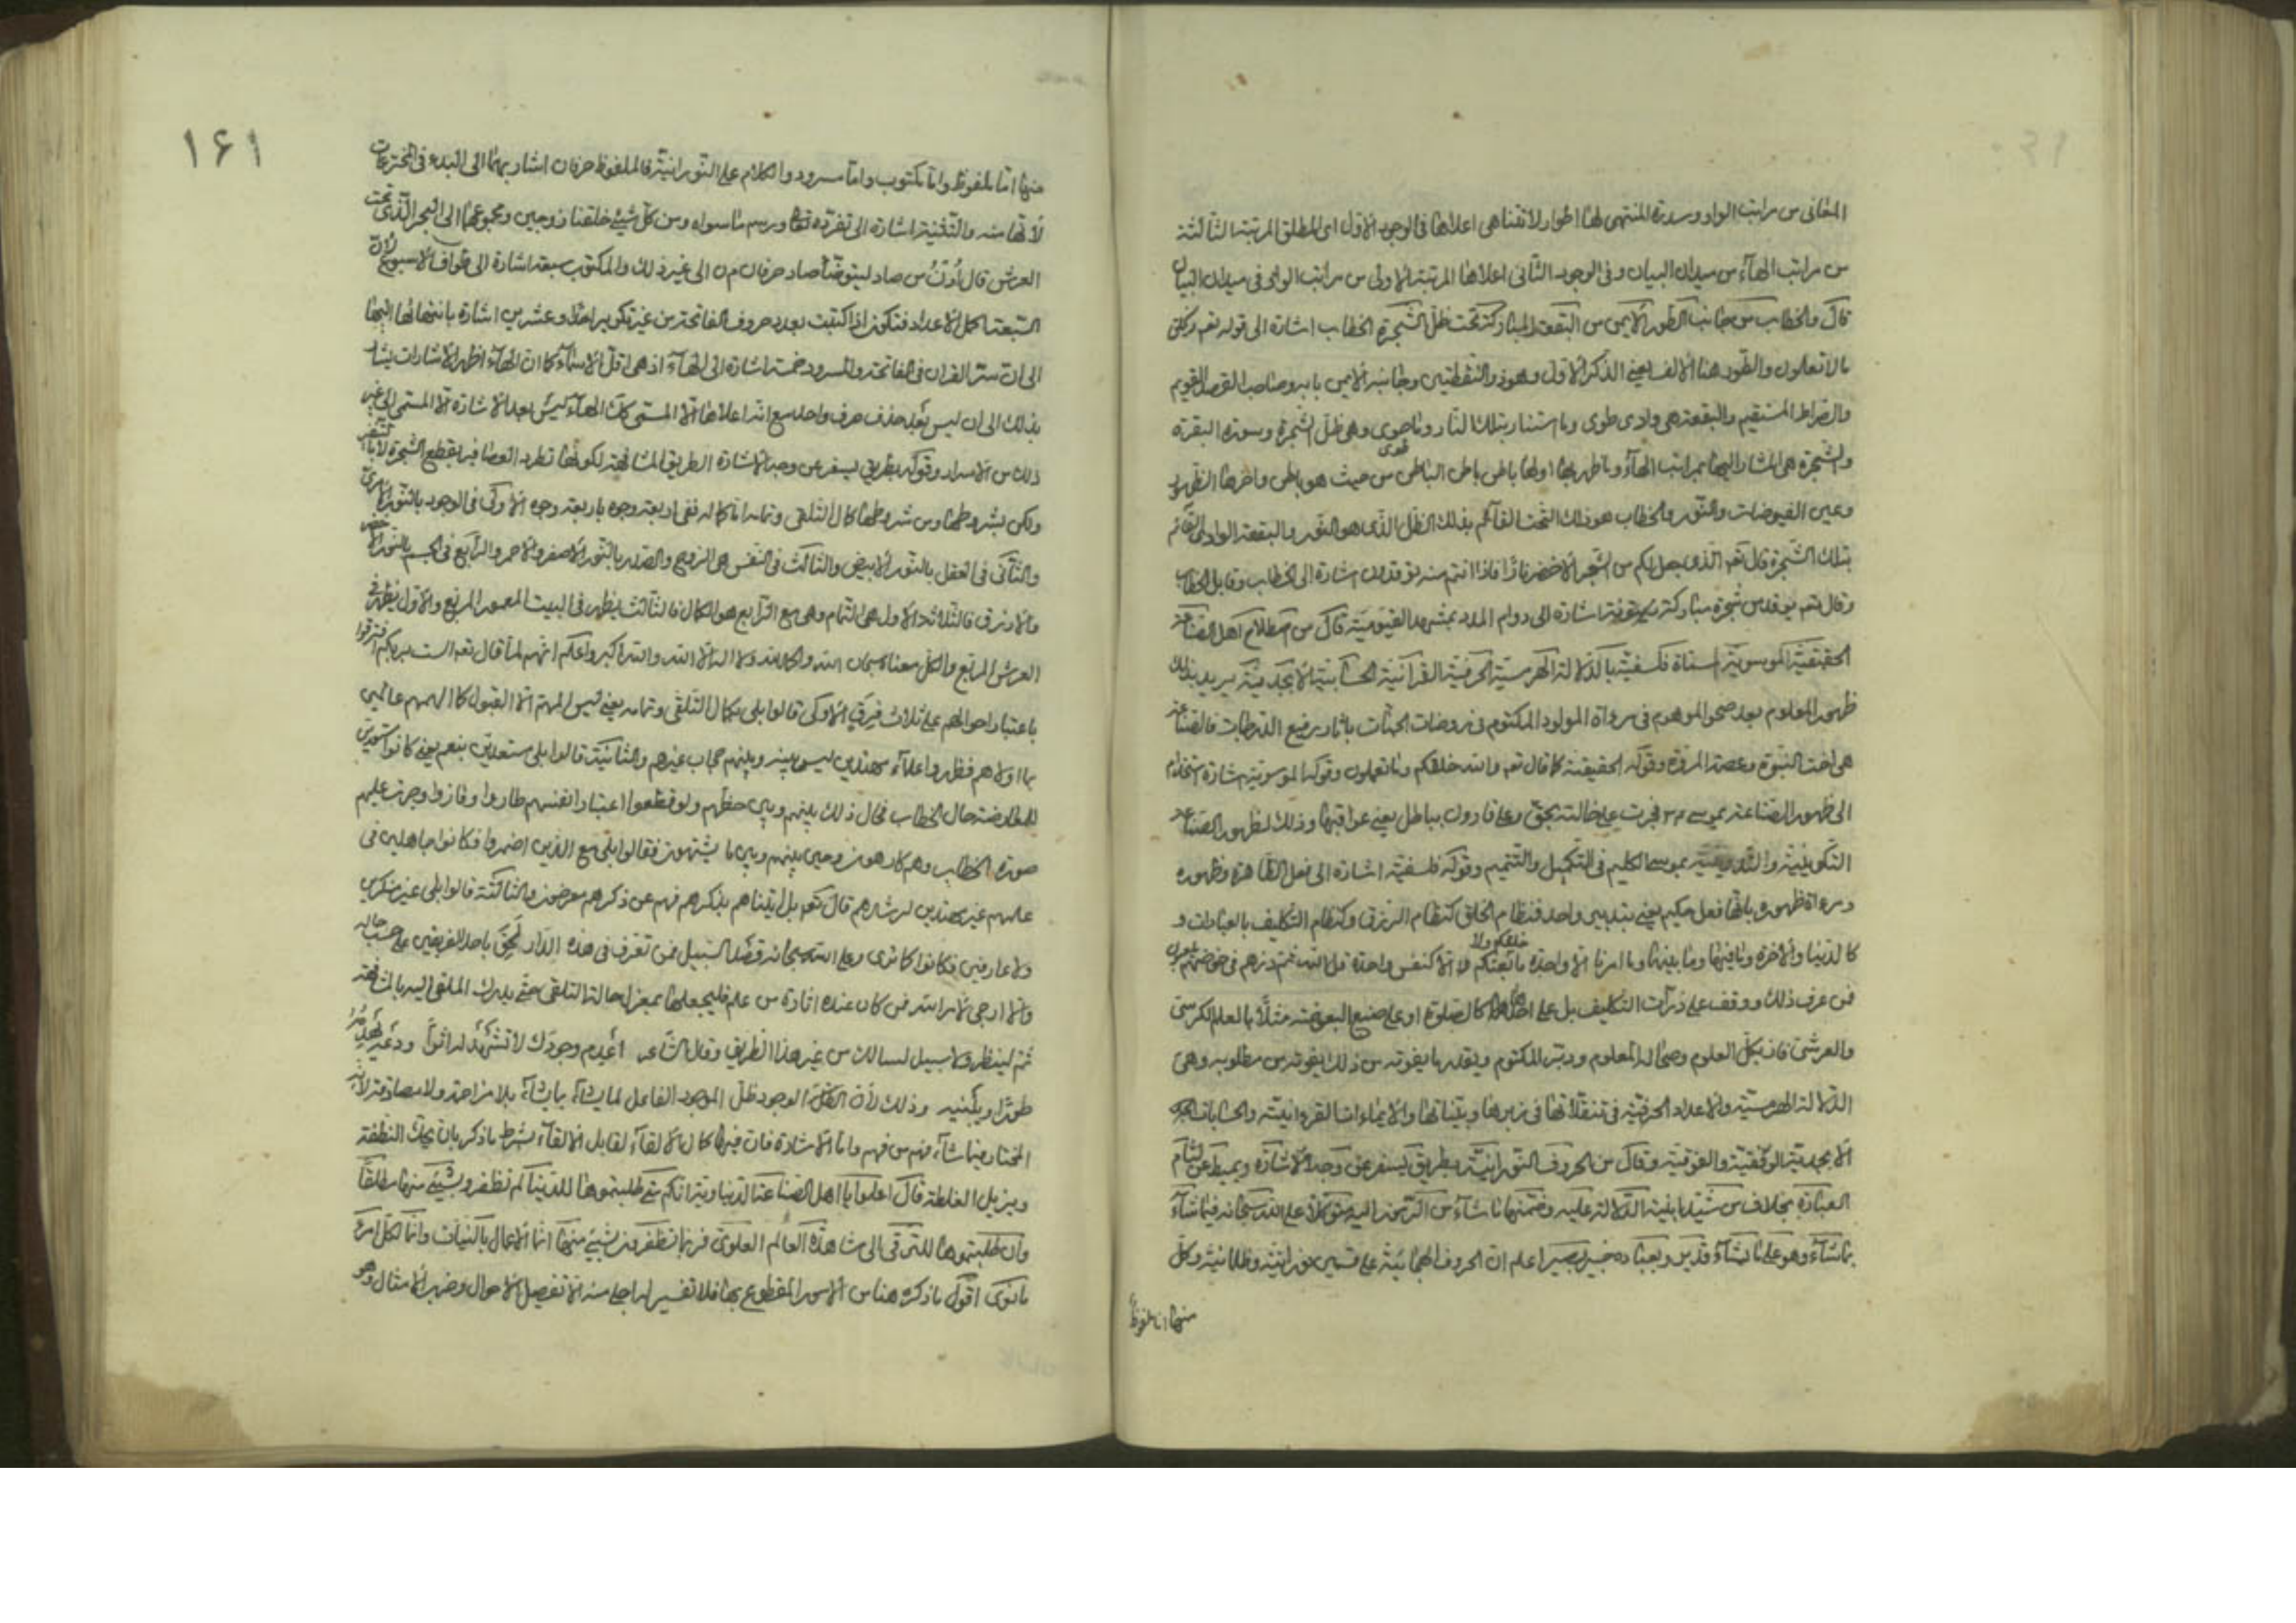 المعانى من مراتب الواو وسدرة المنتهى لها اطوار لاتتناهى اعلاها فى الوجود الاول اى المطلق المرتبة الثالثة
من مراتب الهآء من ميدان البيان وفى الوجود الثانى اعلاها المرتبة الاولى من مراتب الواو فى ميدان البيان
قال والخطاب من جانب الطور الأيمن من البقعة المباركة تحت ظل الشجرة الخطاب اشارة الى قوله تعم
والطور هنا الألف يعنى الذكر الاول وهو والنقطتين وجانبه الأيمن بابه وصاحب القويم
والصراط المستقيم والبقعة هى وادى طوى وما استنار بتلك النار وهى ظل الشجرة وسورة البقرة
والشجرة هى المشار اليها بمراتب الهآء وما ظهر بها اولها باطن باطن الباطن من حيث هو باطن واخرها الظهور
وعين الفيوضات والنور والخطاب هو ذلك التحت القآئم بذلك الظل الذى هو النور والبقعة الوادى القآئم
بتلك الشجرة قال تعم الذى جعل لكم من الشجر الأخضر نارًا فاذا انتم منه توقدون اشارة الى الخطاب وقابل الخطاب
وقال تعم يوقد من شجرة مباركة زيتونة اشارة الى دوام المدد بمشهد القيومية قال من اصطلام اهل الصناعة
الحقيقية الموسوية فلسفية بالدلالة الهرمسية الحرفية القرآنية الحسابية الأبجدية يريد بذلك
ظهور المعلوم بعد صحو الموهوم فى مرءاة المولود المكتوم فى روضات الجنات باثار رفيع الدرجات فالصناعة
هى اخت النبوة وعصمة المروة وقوله الحقيقية كما قال تعم والله خلقكم وما تعملون وقوله الموسوية اشارة
الى ظهور الصناعة بموسى فجرت على خالته بحق وعلى قارون بباطل يعنى عواقبها وذلك لظهور الصناعة
التكوينية بموسى الكليم فى التكميل والتتميم وقوله فلسفية اشارة الى فعل الظاهرة وظهوره
ومرءاة ظهوره بانها فعل حكيم يعنى بتدبير واحد فنظام الخلق كنظام الرزق وكنظام التكليف بالعبادات و
كالدنيا والآخرة وما فيها وما بينها وما امرنا الا واحدة ما خلقكم ولا بعثكم الا كنفس واحدة قل الله ثم ذرهم فى خوضهم يلعبون
فمن عرف ذلك ووقف على ذرآت التكليف بل على كالصلوة او على صنيع البعوضة مثلًا بالعلم الكرسى
والعرشى فاز بكل العلوم وصحا له المعلوم ودبر المكتوم وبقدر ما يفوته من ذلك يفوته من مطلوبه وهى
الدلالة الهرمسية والاعداد الحرفية فى تنقلاتها فى زبرها وبيناتها والايماءات القرءانية والحسابات
الأبجدية الوفقية والفوقية وقال من الحروف النورانية بطريق يسفر عن وجه الأشارة ويميط عن لثام
العبارة بخلاف من شيد ابنية الدلالة عليه وضمنها ما شآء من الرموز اليه متوكلا على الله سبحانه فيما شآء
بما شآء وهو على ما يشآء قدير وبعباده خبير بصير اعلم ان الحروف الهجائية على قسمين نورانية وظلمانية وكل
منها اما ملفوظ
١٤١
منها اما ملفوظ واما مكتوب واما مسرود والكلام على النورانية فالملفوظ حرفان اشار بهما الى البدء فى المخترعات
لأنها منه والتثنية اشارة الى تفرده تعالى ورسم ما سواه ومن كل شىء خلقنا زوجين ومجموعهما الى البحر الذى تحت
العرش قال أدن من صاد ليتوضأ صاد حرفان م ن الى غير ذلك والمكتوب سبعة اشارة الى طواف الاسبوع لأن
السبعة اكمل الأعداد فتكون اذا كتبت بعدد حروف الفاتحة من غير تكرير احدا وعشرين اشارة بانتهائها اليها
الى ان سر القران فى الفاتحة والمسرود خمسة اشارة الى الهآء اذ هى اول الاسمآء كما ان الهآء اظهر الاشارات يشار
بذلك الى ان ليس بعد حذف حرف واحد مع انه اعلاها الا المسمى كذلك الهآء ليس بعد الاشارة الا المسمى الى غير
ذلك من الأسرار وقوله بطريق يسفر عن وجه الأشارة الطريق المشافهة لكونها تطرد العصافير بقطع الشجرة
ولكن بشروطها ومن شروطها كمال التلقى ففى اربعة وجوه باربعة وجوه الأولى فى الوجود بالنور
والثانى فى العقل بالنور الأبيض والثالث فى النفس هى الروح والصدر بالنور الأصفر والاحمر والرابع فى الجسم بالنور
والأزرق فالثلاثة الاول هى التمام وهى مع الرابع هو الكمال فالثالث يظهر فى البيت المعمور المربع والاول يظهر فى
العرش المربع والكل معناه سبحان الله والحمد لله ولا اله الا الله والله اكبر واعلم انهم لما قال تعم الست بربكم افترقوا
باعتبار احوالهم على ثلاث فرق الأولى قالوا بلى بكمال التلقى وتمامه يعنى ليس لهم الا القبول عالمين
بما اولاهم فظهروا اعلاء مهتدين ليس بينه وبينهم حجاب غيرهم والثانية قالوا بلى مستعدين بنعم يعنى كانوا
حال الخطاب فحال ذلك بينهم وبين حظهم ولو قطعوا اعتبار انفسهم طاروا وفازوا وجرت عليهم
صورة الخطاب وهم كارهون وحيل بينهم وبين ما يشتهون فقالوا بلى مع الذين اضمروا فكانوا جاهلين فى
علمهم غير مهتدين لرشدهم قال تعم بل اتيناهم بذكرهم فهم عن ذكرهم معرضون والثالثة قالوا بلى غير منكرين
ولا عارفين فكانوا كما ترى وعلى الله سبحانه قصد السبيل فمن تعرف فى هذه الدار لحق باحد الفريقين على حسب حاله
والا ارجى لأمر الله فمن كان عنده اثارة من علم فليجعلها بمعزل حالة التلقى حتى يدرك الملقى اليه بالمشافهة
ثم لينظر ولا سبيل لسالك من غير هذا الطريق وقال الشاعر اعدم وجودك لا تشهد له اثرًا ودعه يهدمه
طورًا ويبنيه وذلك لأن الوجود ظل الموجد الفاعل لما يشآء بما يشآء بلا مزاحمة ولا مصادمة لأنه
المختار فيما شآء فهم من فهم واما الاشارة فان فيها كمال الالقآء لقابل الالقآء بشرط ما ذكر بان يحك النطفة
ويزيل الغلطة قال اعلموا يا اهل الصناعة الدنياوية انكم متى طلبتموها للدنيا لم تظفروا بشىء منها مطلقًا
وان طلبتموها للترقى الى مشاهدة العالم العلوى فربما تظفرون بشىء منها انما الأعمال بالنيات وانما لكل امرئ
ما نوى اقول ما ذكره هنا من الامور المقطوع بها فلا تفسير له اجلى منه الا تفصيل الأحوال وضرب الأمثال وهو